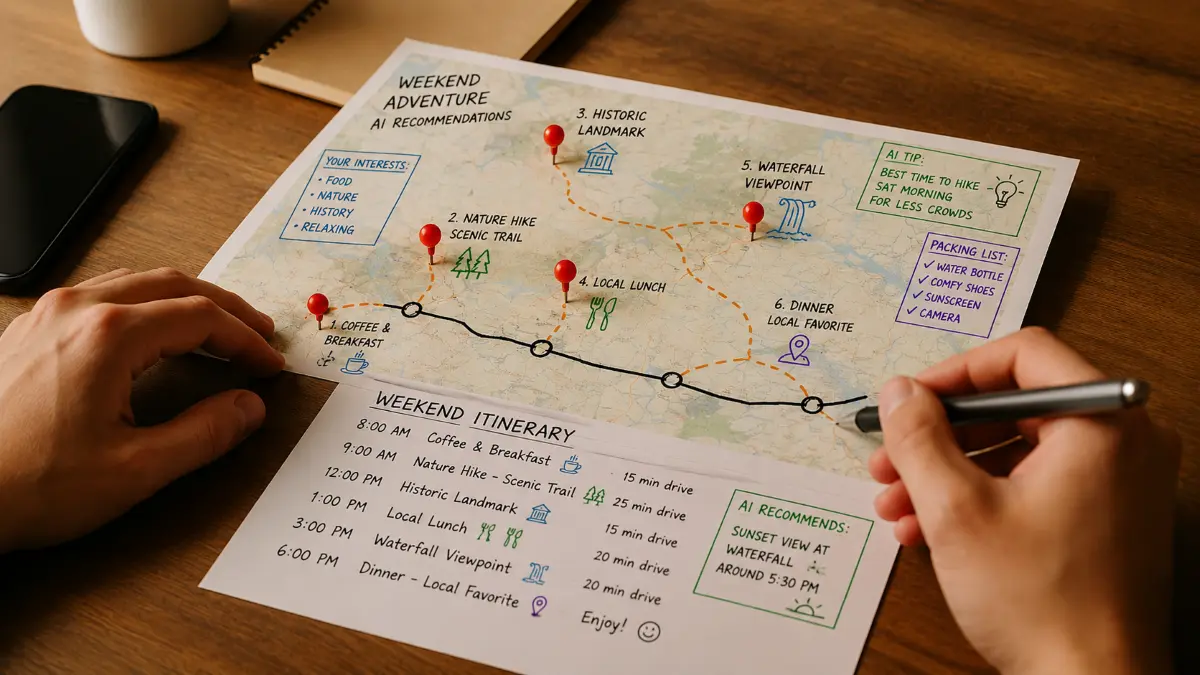 WEEKEND
ADVENTURE
AI RECOMMENDATIONS
YOUR INTERESTS:
• FOOD
• NATURE
• HISTORY
• RELAXING
1. COFFEE &
BREAKFAST
2. NATURE HIKE
SCENIC TRAIL
3. HISTORIC
LANDMARK
4. LOCAL LUNCH
5. WATERFALL
VIEWPOINT
6. DINNER
LOCAL FAVORITE
AI TIP:
BEST TIME TO HIKE
SAT MORNING
FOR LESS CROWDS
PACKING LIST:
✓ WATER BOTTLE
✓ COMFY SHOES
✓ SUNSCREEN
✓ CAMERA
WEEKEND ITINERARY
8:00 AM Coffee & Breakfast · 15 min drive
9:00 AM Nature Hike - Scenic Trail 25 min drive
12:00 PM Historic Landmark 15 min drive
1:00 PM Local Lunch 20 min drive
3:00 PM Waterfall Viewpoint 20 min drive
6:00 PM Dinner - Local Favorite Enjoy!
AI RECOMMENDS:
SUNSET VIEW AT
WATERFALL
AROUND 5:30 PM